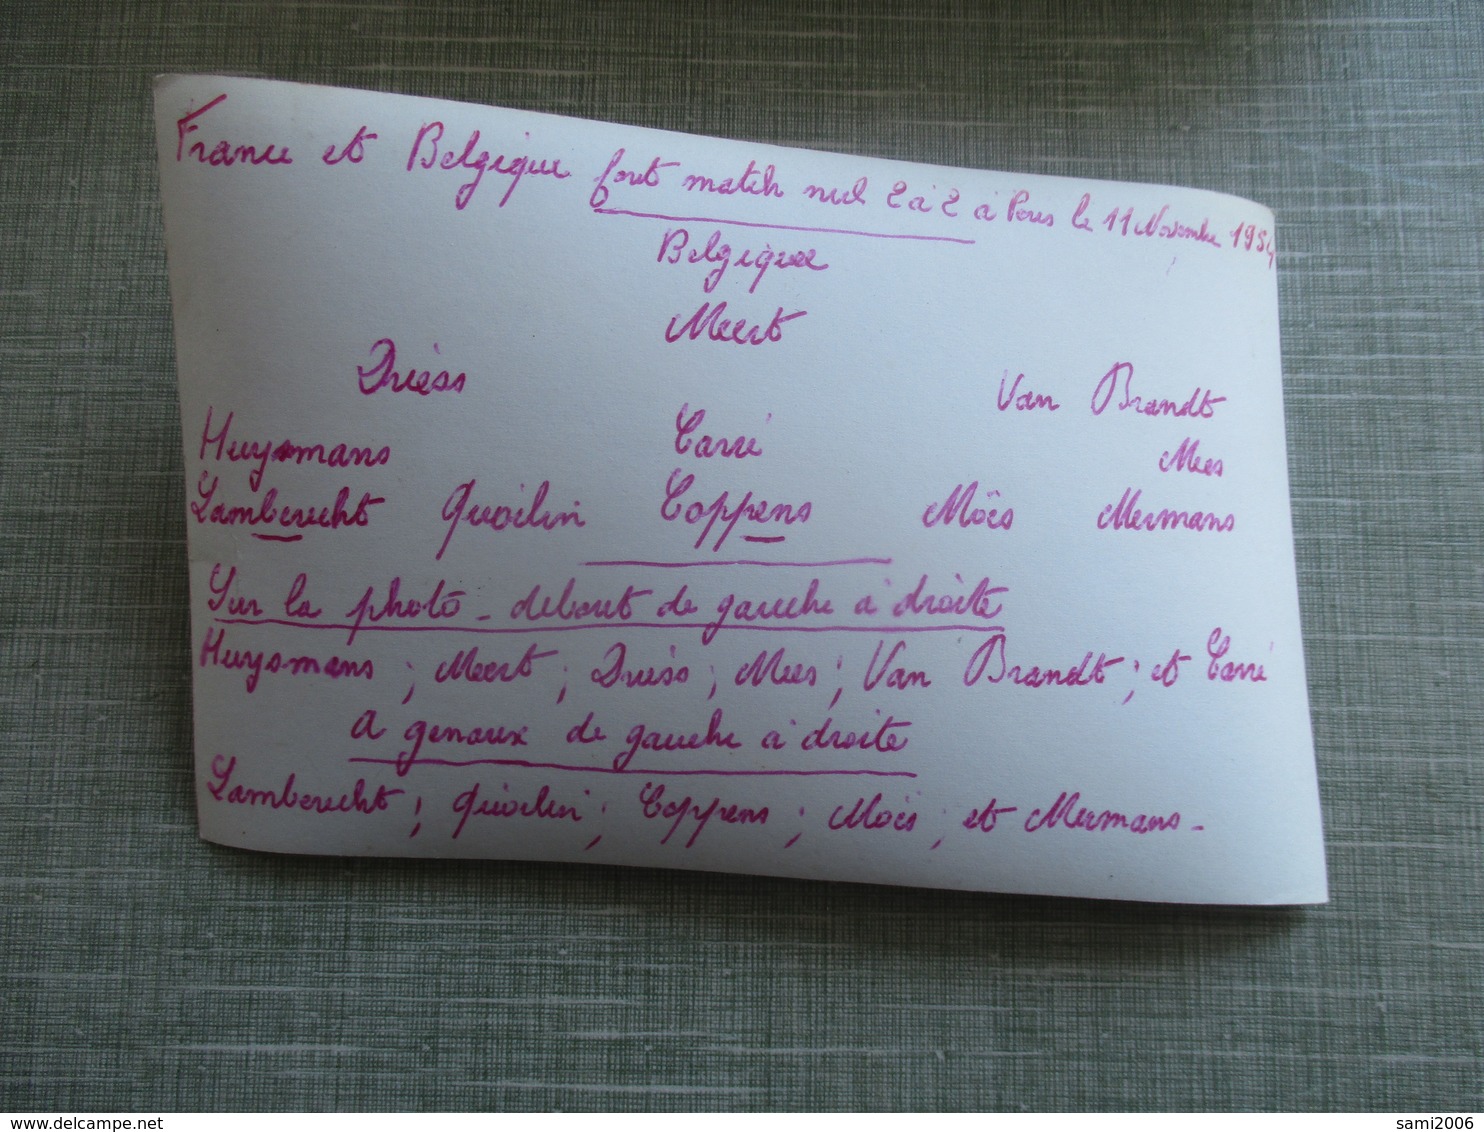 France et Belgique font match nul 2 à 2 à Paris le 11 Novembre 1954
Belgique
Meert
Drièss Van Brandt
Huysmans Carré Mees
Lamberecht Quoilin Coppens Moës Mermans
Sur la photo - debout de gauche à droite
Huysmans ; Meert ; Drièss ; Mees ; Van Brandt ; et Carré
A genoux de gauche à droite
Lamberecht ; Quoilin ; Coppens ; Moës ; et Mermans -
delcampe.net
sami2006